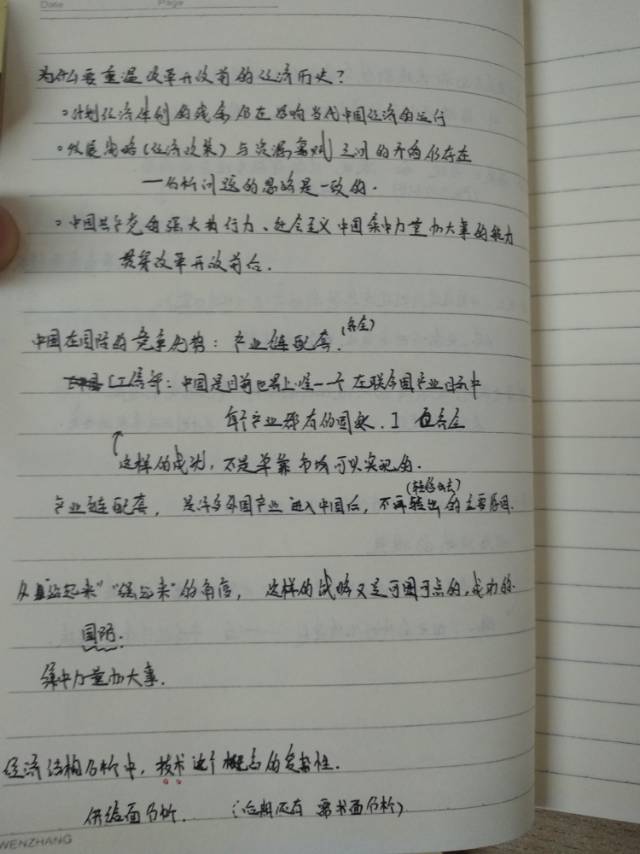 Date
Page
为什么要重温改革开放前的经济历史？
◦计划经济体制的残余仍在影响当代中国经济的运行
◦发展战略(经济政策)与资源禀赋之间的矛盾仍存在
—分析问题的思路是一致的.
◦中国共产党的强大执行力、社会主义中国集中力量办大事的能力
贯穿改革开放前后.
(齐全)
中国在国际的竞争优势：产业链配套.
[工信部：中国是目前世界上唯一一个在联合国产业目录中
每个产业都有的国家.] 齐全
这样的成功，不是单靠市场可以实现的.
(轻易出去)
产业链配套，是许多外国产业进入中国后，不再转出的主要原因.
从"站起来""强起来"的角度，这样的战略又是可圈可点的,成功的.
国防.
集中力量办大事.
经济结构分析中，技术这个概念的复杂性.
供给面分析. (后期还有需求面分析)
WENZHANG